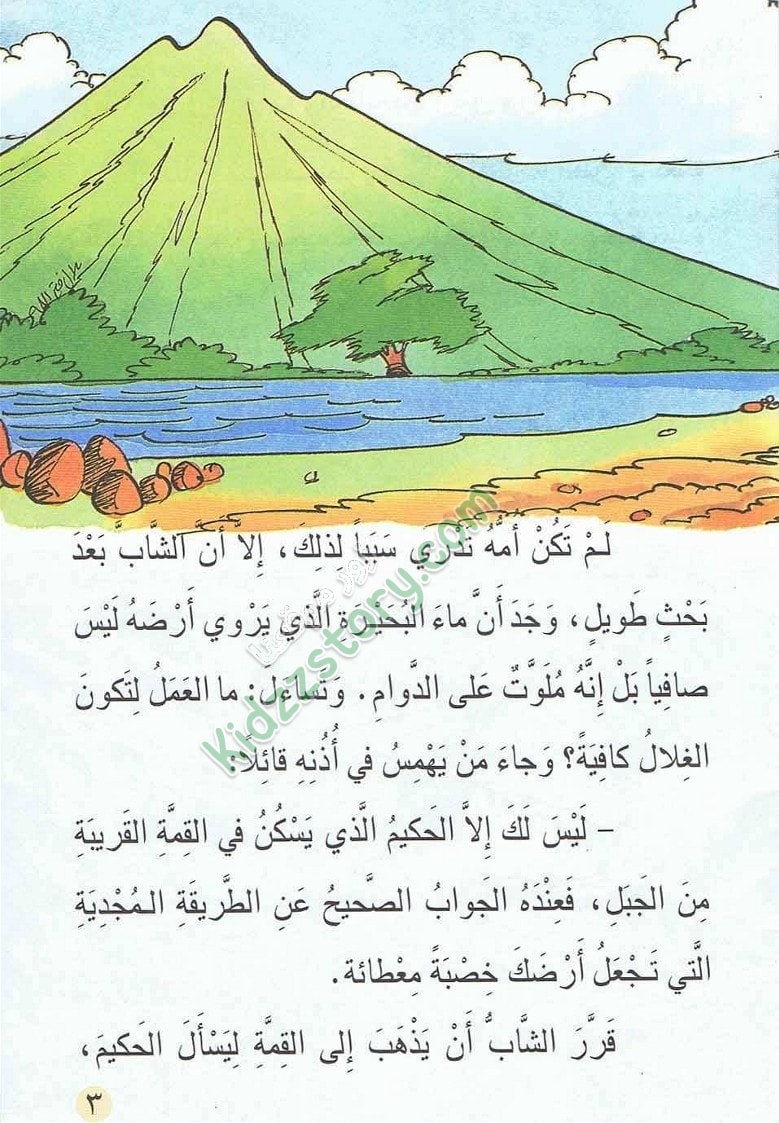 لَمْ تَكُنْ أُمُّهُ تَدْري سَبَباً لِذلِكَ، إِلاَّ أَنَّ الشَّابَّ بَعْدَ
بَحْثٍ طَويلٍ، وَجَدَ أَنَّ ماءَ البُحَيْرةِ الَّذي يَرْوي أَرْضَهُ لَيْسَ
صافِياً بَلْ إِنَّهُ مُلَوَّثٌ عَلى الدَّوامِ. وَتَساءَل: ما العَمَلُ لِتَكونَ
الغِلالُ كافِيَةً؟ وَجاءَ مَنْ يَهْمِسُ في أُذُنِهِ قائِلًا:
– لَيْسَ لَكَ إِلاَّ الحَكيمُ الَّذي يَسْكُنُ في القِمَّةِ القَريبَةِ
مِنَ الجَبَلِ، فَعِنْدَهُ الجَوابُ الصَّحيحُ عَنِ الطَّريقَةِ المُجْدِيَةِ
الَّتي تَجْعَلُ أَرْضَكَ خِصْبَةً مِعْطائة.
قَرَّرَ الشَّابُّ أَنْ يَذْهَبَ إِلى القِمَّةِ لِيَسْأَلَ الحَكيمَ،
٣
Kidzzstory.com